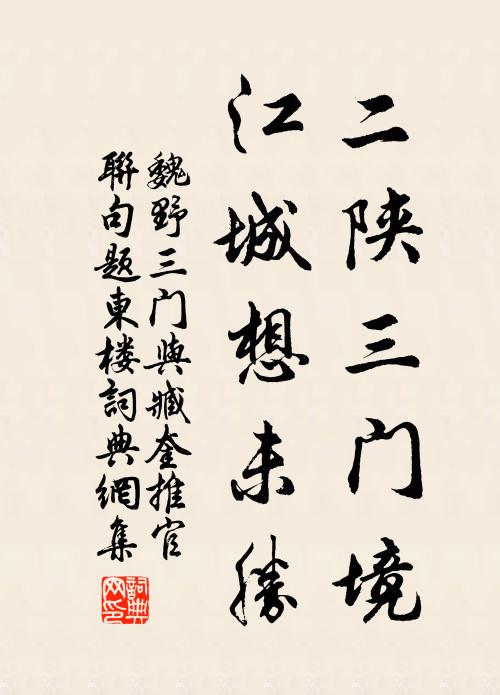 二陕三门境
江城想未勝
魏野三门與臧奎推官
聯句题東楼詞典網集
詞典網印